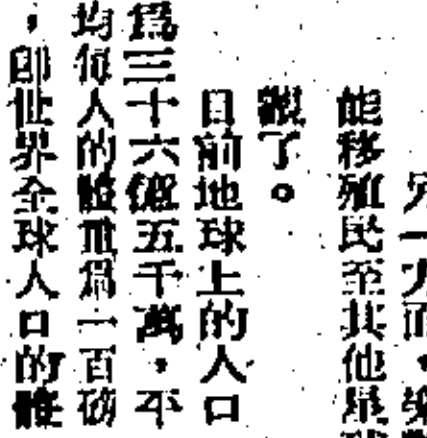 另一方面，
能移殖民至其他星球
觀了。
目前地球上的人口
爲三十六億五千萬，平
均每人的體重爲一百磅
，即世界全球人口的體